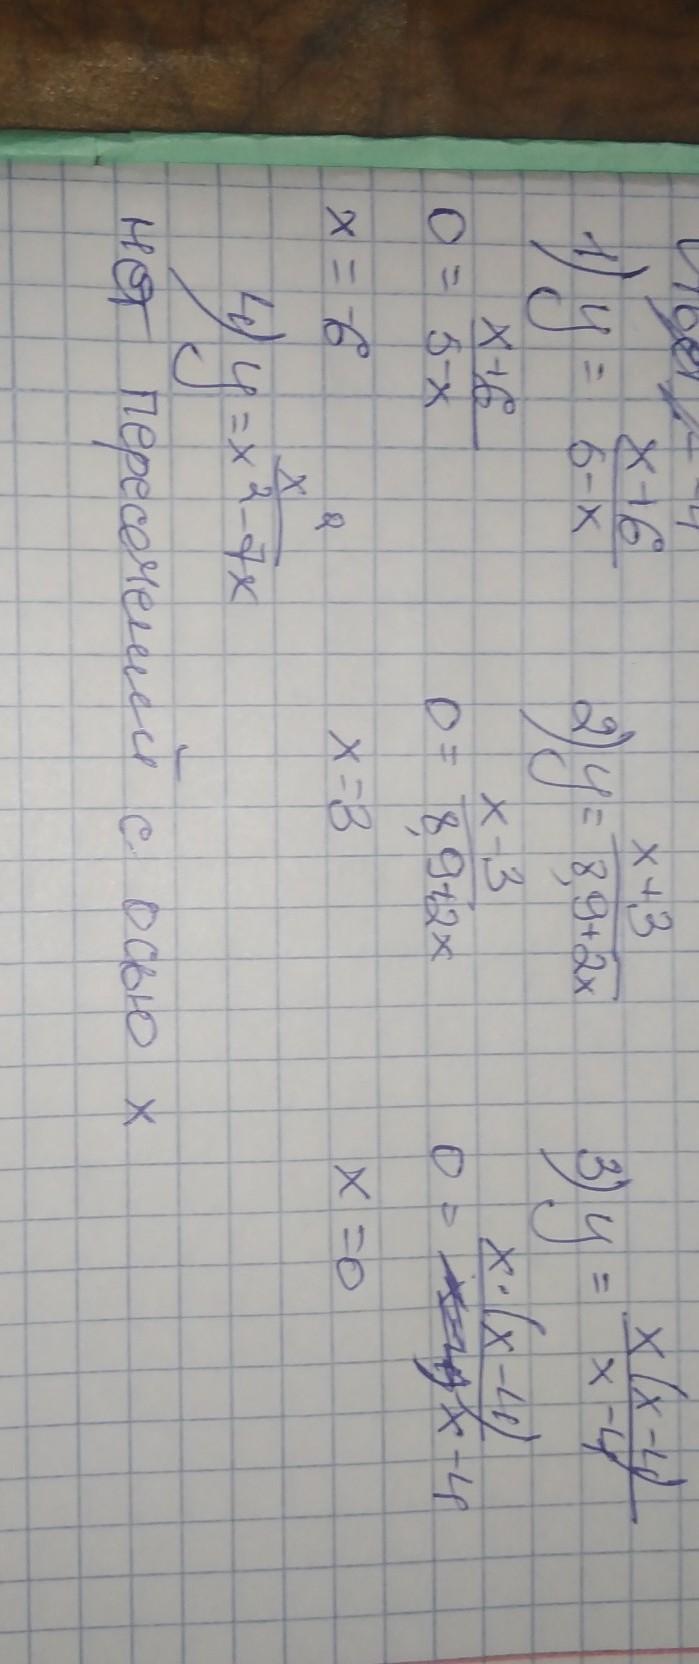 Ответ: -4
1) y = (x+6)/(5-x) 2) y = (x+3)/(8,9+2x) 3) y = (x(x-4))/(x-4)
0 = (x+6)/(5-x) 0 = (x-3)/(8,9+2x) 0 = (x·(x-4))/(x-4)
x = -6 x = 3 x = 0
4) y = x²/(x²-7x)
нет пересечений с осью x